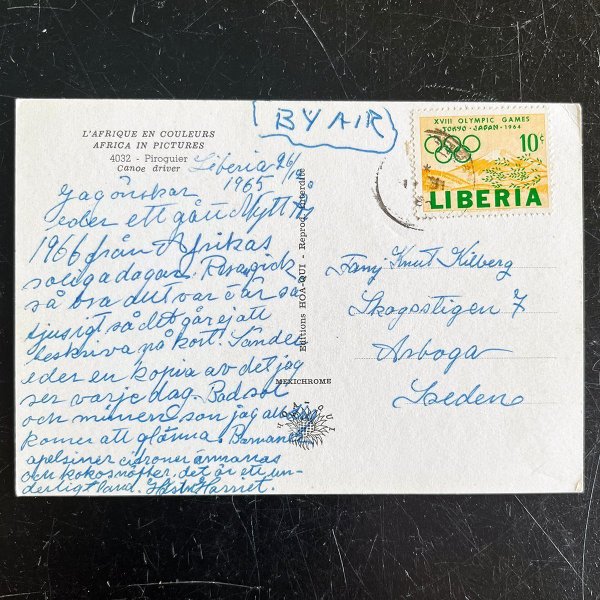 L'AFRIQUE EN COULEURS
AFRICA IN PICTURES
4032 - Piroguier
Canoe driver
Liberia 26/12
1965
Jag önskar
eder ett gått Nytt År
1966 från Afrikas
soliga dagar. Resan gick
så bra det var
tjusigt så det går ej att
beskriva på kort. Sänder
eder en kopia av det jag
ser varje dag. Bad sol
och minnen som jag aldrig
komer att glömma. Bananer
apelsiner citroner ananas
och kokosnötter. det är ett un-
derligt land. Harriet.
Editions HOA-QUI - Reprod. Interdite
MEXICHROME
HOA QUI
BY AIR
XVIII OLYMPIC GAMES
TOKYO - JAPAN - 1964
10c
LIBERIA
Famj Knut Kilberg
Skogsstigen 7
Arboga
Sweden